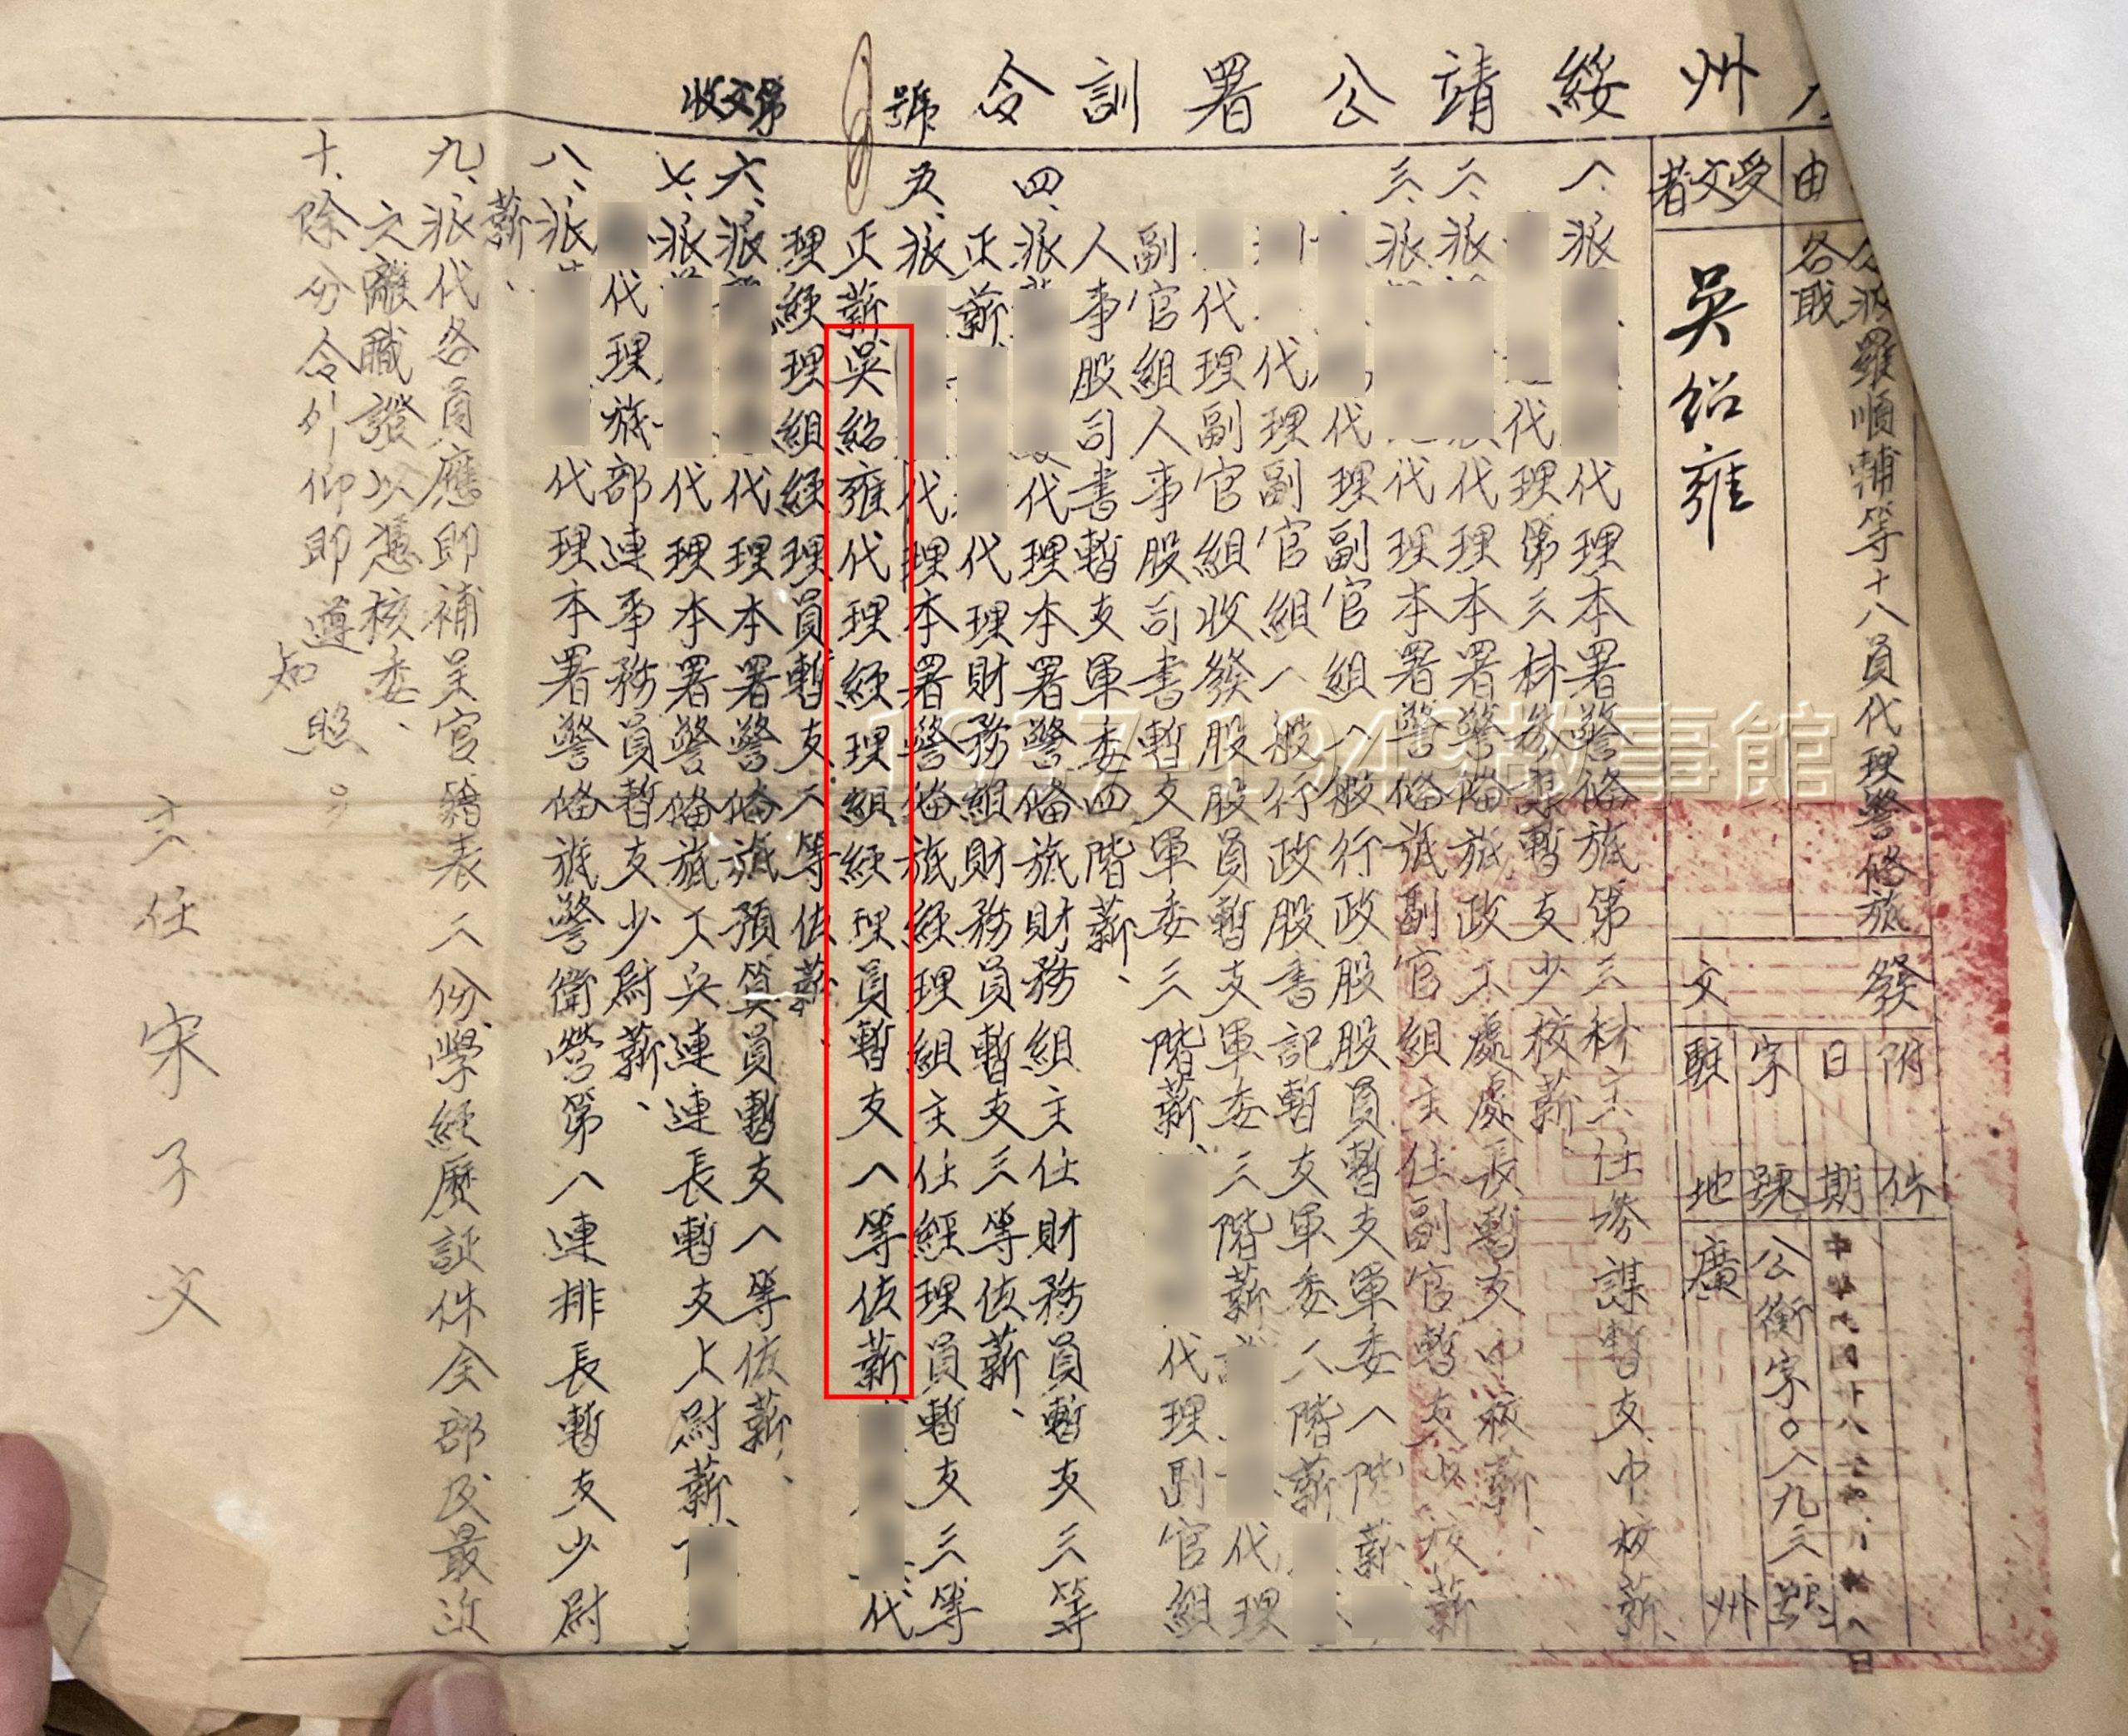 州綏靖公署訓令
號
收文第
由
分派羅順輔等十八員代理警俻旅
各職
受文者
吳紹雍
發文
附件
日期
中華民國卅八年
八日
字號
公衡字〇一九三號
駐地
廣州
一、派
代理本署警俻旅第三科主任參謀暫支中校薪、
代理第三科參謀暫支少校薪
二、派
代理本署警俻旅政工處處長暫支中校薪、
三、派
代理本署警俻旅副官組主任副官暫支少校薪
代理副官組一般行政股股員暫支軍委一階薪
代理副官組一般行政股書記暫支軍委二階薪
代理副官組收發股股員暫支軍委三階薪
代理
副官組人事股司書暫支軍委三階薪、
代理副官組
人事股司書暫支軍委四階薪、
四、派
代理本署警俻旅財務組主任財務員暫支三等
正薪
代理財務組財務員暫支三等佐薪、
五、派
代理本署警俻旅經理組主任經理員暫支三等
正薪吳紹雍代理經理組經理員暫支一等佐薪
代
理經理組經理員暫支二等佐薪、
六、派
代理本署警俻旅預算員暫支一等佐薪、
七、派
代理本署警俻旅工兵連連長暫支上尉薪
代理旅部連事務員暫支少尉薪、
八、派
代理本署警俻旅警衛營第一連排長暫支少尉
薪、
九、派代各員應即補呈官籍表二份學經歷証件全部及最近
之離職證以憑核委、
十、除分令外仰即遵
知照
主任宋子文
1937-1945故事館